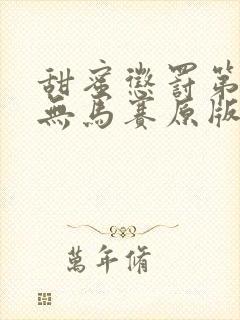 甜蜜懲罰第
無馬賽原版
萬年脩